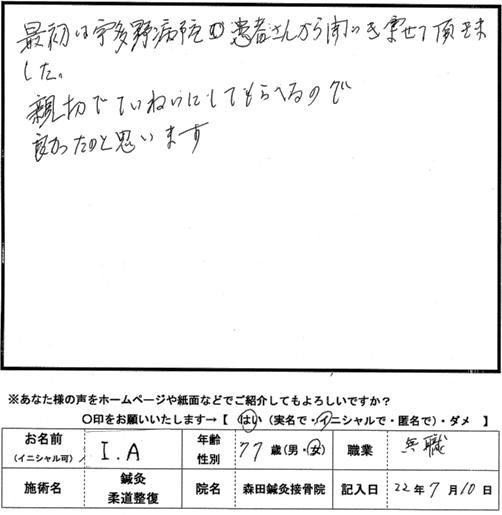 最初は宇多野病院の患者さんから聞いき寄せて頂きま
した。
親切でていねいにしてもらへるので
良かったのと思います
※あなた様の声をホームページや紙面などでご紹介してもよろしいですか？
〇印をお願いいたします→【 はい（実名で・イニシャルで・匿名で）・ダメ 】
お名前（イニシャル可） I.A 年齢 性別 77歳（男・女） 職業 無職
施術名 鍼灸 柔道整復 院名 森田鍼灸接骨院 記入日 22年7月10日